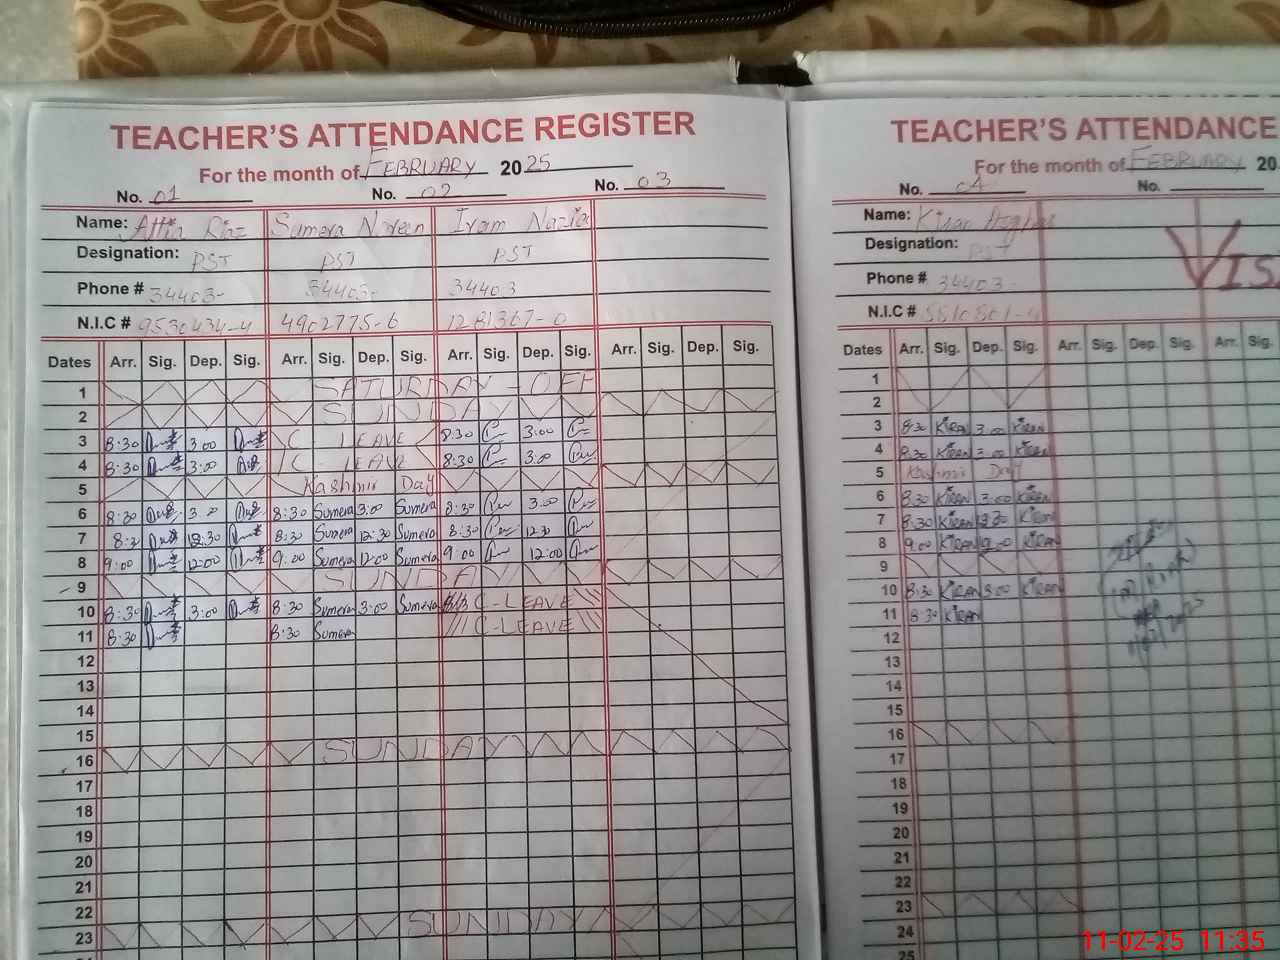 TEACHER'S ATTENDANCE REGISTER
For the month of FEBRUARY 2025
No. 01 No. 02 No. 03
Name: Attia Riaz Sumera Noreen Iram Nazia
Designation: PST PST PST
Phone # 34403- 34403- 34403
N.I.C # 9530434-4 4902775-6 1281367-0
Dates Arr. Sig. Dep. Sig. Arr. Sig. Dep. Sig. Arr. Sig. Dep. Sig. Arr. Sig. Dep. Sig.
1 SATURDAY - OFF
2 SUNDAY
3 8:30 3:00 C LEAVE 8:30 3:00
4 8:30 3:00 C - LEAVE 8:30 3:00
5 Kashmir Day
6 8:30 3:00 8:30 Sumera 3:00 Sumera 8:30 3:00
7 8:30 12:30 8:30 Sumera 12:30 Sumera 8:30 12:30
8 9:00 12:00 9:00 Sumera 12:00 Sumera 9:00 12:00
9 SUNDAY
10 8:30 3:00 8:30 Sumera 3:00 Sumera C-LEAVE
11 8:30 8:30 Sumera C-LEAVE
12
13
14
15
16 SUNDAY
17
18
19
20
21
22
23 SUNDAY
TEACHER'S ATTENDANCE
For the month of FEBRUARY 20
No. 04 No.
Name: Kiran Asghar
Designation: PST
Phone # 34403-
N.I.C # 5510801-4
VIS
Dates Arr. Sig. Dep. Sig. Arr. Sig. Dep. Sig. Arr. Sig.
1
2
3 8:30 KIRAN 3:00 KIRAN
4 8:30 KIRAN 3:00 KIRAN
5 Kashmir Day
6 8:30 KIRAN 3:00 KIRAN
7 8:30 KIRAN 12:30 KIRAN
8 9:00 KIRAN KIRAN
9
10 8:30 KIRAN 3:00 KIRAN
11 8:30 KIRAN
12
13
14
15
16
17
18
19
20
21
22
23
24
25
11-02-25 11:35